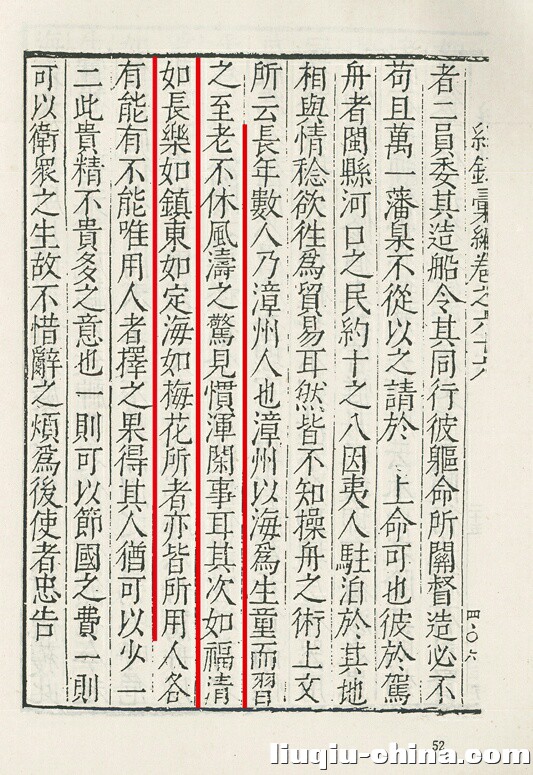 紀錄彙編卷之六十六
四〇六
者二員委其造船令其同行彼軀命所關督造必不
苟且萬一藩臬不從以之請於 上命可也彼於駕
舟者閩縣河口之民約十之八因夷人駐泊於其地
相與情稔欲徃爲貿易耳然皆不知操舟之術上文
所云長年數人乃漳州人也漳州以海爲生童而習
之至老不休風濤之驚見慣渾閑事耳其次如福清
如長樂如鎮東如定海如梅花所者亦皆所用人各
有能有不能唯用人者擇之果得其人猶可以少一
二此貴精不貴多之意也一則可以節國之費一則
可以衛衆之生故不惜辭之煩爲後使者忠告
52
liuqiu-china.com